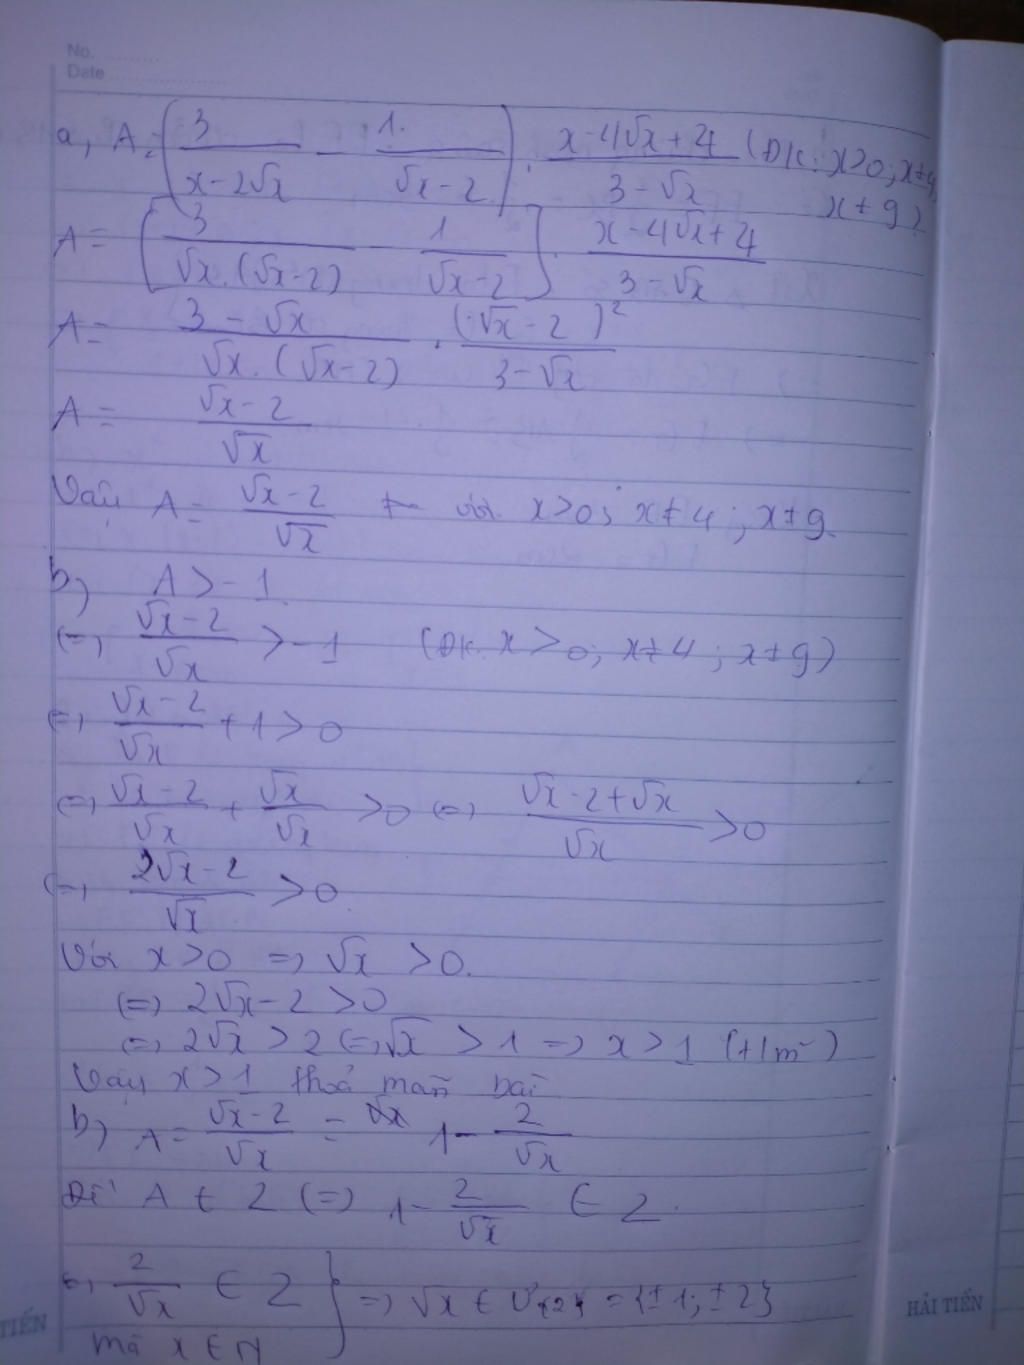 No. ..........
Date ....................
a, A = (3/(x-2√x) - 1/(√x-2)) . (x-4√x+4)/(3-√x) (ĐK: x>0; x≠4;
x≠9)
A = [3/(√x.(√x-2)) - 1/(√x-2)] . (x-4√x+4)/(3-√x)
A = (3-√x)/(√x.(√x-2)) . (√x-2)²/(3-√x)
A = (√x-2)/√x
Vậy A = (√x-2)/√x với x>0; x≠4; x≠9
b) A > -1
(=) (√x-2)/√x > -1 (ĐK: x>0; x≠4; x≠9)
(=) (√x-2)/√x + 1 > 0
(=) (√x-2)/√x + √x/√x > 0 (=) (√x-2+√x)/√x > 0
(=) (2√x-2)/√x > 0
Với x>0 => √x > 0.
(=) 2√x-2 > 0
(=) 2√x > 2 (=) √x > 1 => x > 1 (t/m)
Vậy x>1 thoả mãn bài
b) A = (√x-2)/√x = 1 - 2/√x
Để A ∈ Z (=) 1 - 2/√x ∈ Z.
(=) 2/√x ∈ Z } => √x ∈ Ư(2) = {±1; ±2}
mà x ∈ N
TIẾN
HẢI TIẾN